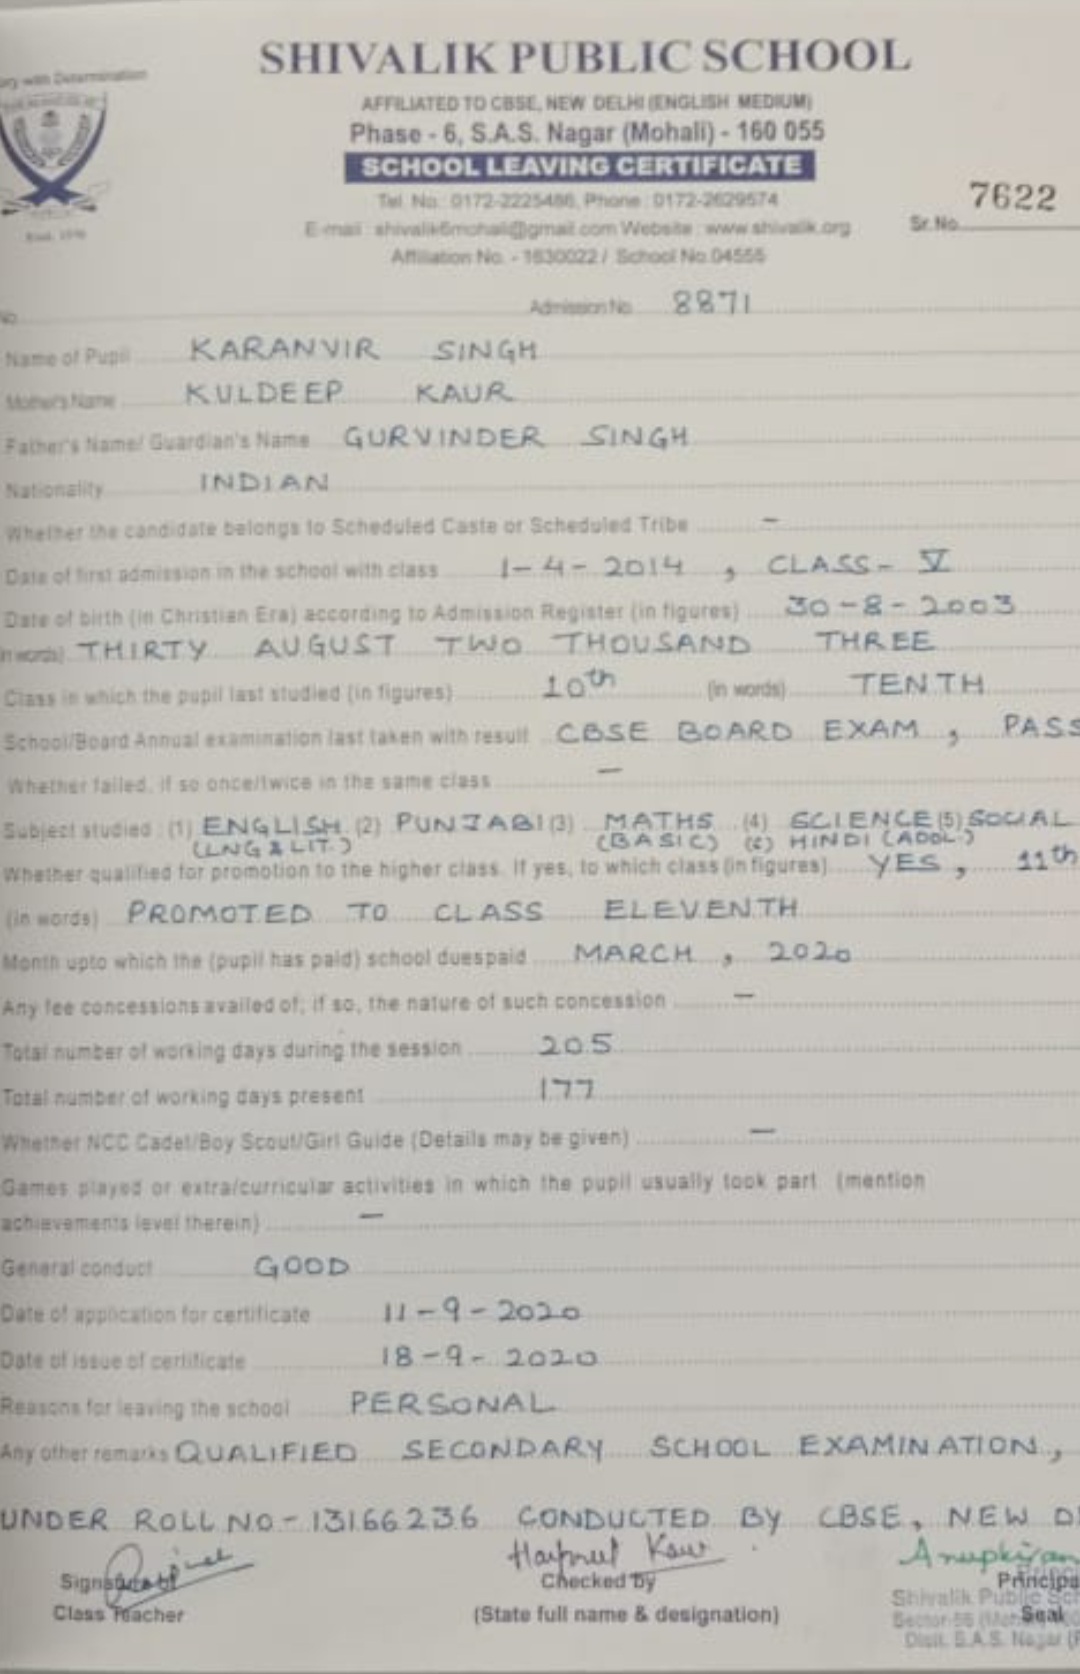 ory with Determination
SHIVALIK PUBLIC SCHOOL
AFFILIATED TO CBSE, NEW DELHI (ENGLISH MEDIUM)
Phase - 6, S.A.S. Nagar (Mohali) - 160 055
SCHOOL LEAVING CERTIFICATE
Tel. No.: 0172-2225486, Phone : 0172-2629574
7622
Sr. No.
E-mail : shivalik6mohali@gmail.com Website : www.shivalik.org
Affiliation No. - 1630022 / School No.04555
No. Admission No. 8871
Name of Pupil KARANVIR SINGH
Mother's Name KULDEEP KAUR
Father's Name/ Guardian's Name GURVINDER SINGH
Nationality INDIAN
Whether the candidate belongs to Scheduled Caste or Scheduled Tribe –
Date of first admission in the school with class 1-4-2014 , CLASS - V
Date of birth (in Christian Era) according to Admission Register (in figures) 30-8-2003
in words) THIRTY AUGUST TWO THOUSAND THREE
Class in which the pupil last studied (in figures) 10th (in words) TENTH
School/Board Annual examination last taken with result CBSE BOARD EXAM , PASS
Whether failed, if so once/twice in the same class –
Subject studied : (1) ENGLISH (2) PUNJABI (3) MATHS (4) SCIENCE (5) SOCIAL
(LNG & LIT.) (BASIC) (6) HINDI (ADDL.)
Whether qualified for promotion to the higher class. If yes, to which class (in figures) YES , 11th
(in words) PROMOTED TO CLASS ELEVENTH
Month upto which the (pupil has paid) school duespaid MARCH , 2020
Any fee concessions availed of; if so, the nature of such concession –
Total number of working days during the session 205
Total number of working days present 177
Whether NCC Cadet/Boy Scout/Girl Guide (Details may be given) –
Games played or extra/curricular activities in which the pupil usually took part (mention
achievements level therein) –
General conduct GOOD
Date of application for certificate 11-9-2020
Date of issue of certificate 18-9-2020
Reasons for leaving the school PERSONAL
Any other remarks QUALIFIED SECONDARY SCHOOL EXAMINATION,
UNDER ROLL NO - 13166236 CONDUCTED BY CBSE, NEW D
Harpreet Kaur Anupkiran
Signature of Checked by Principa
Class Teacher (State full name & designation) Seal
Shivalik Public Sch
Distt. S.A.S. Nagar (P